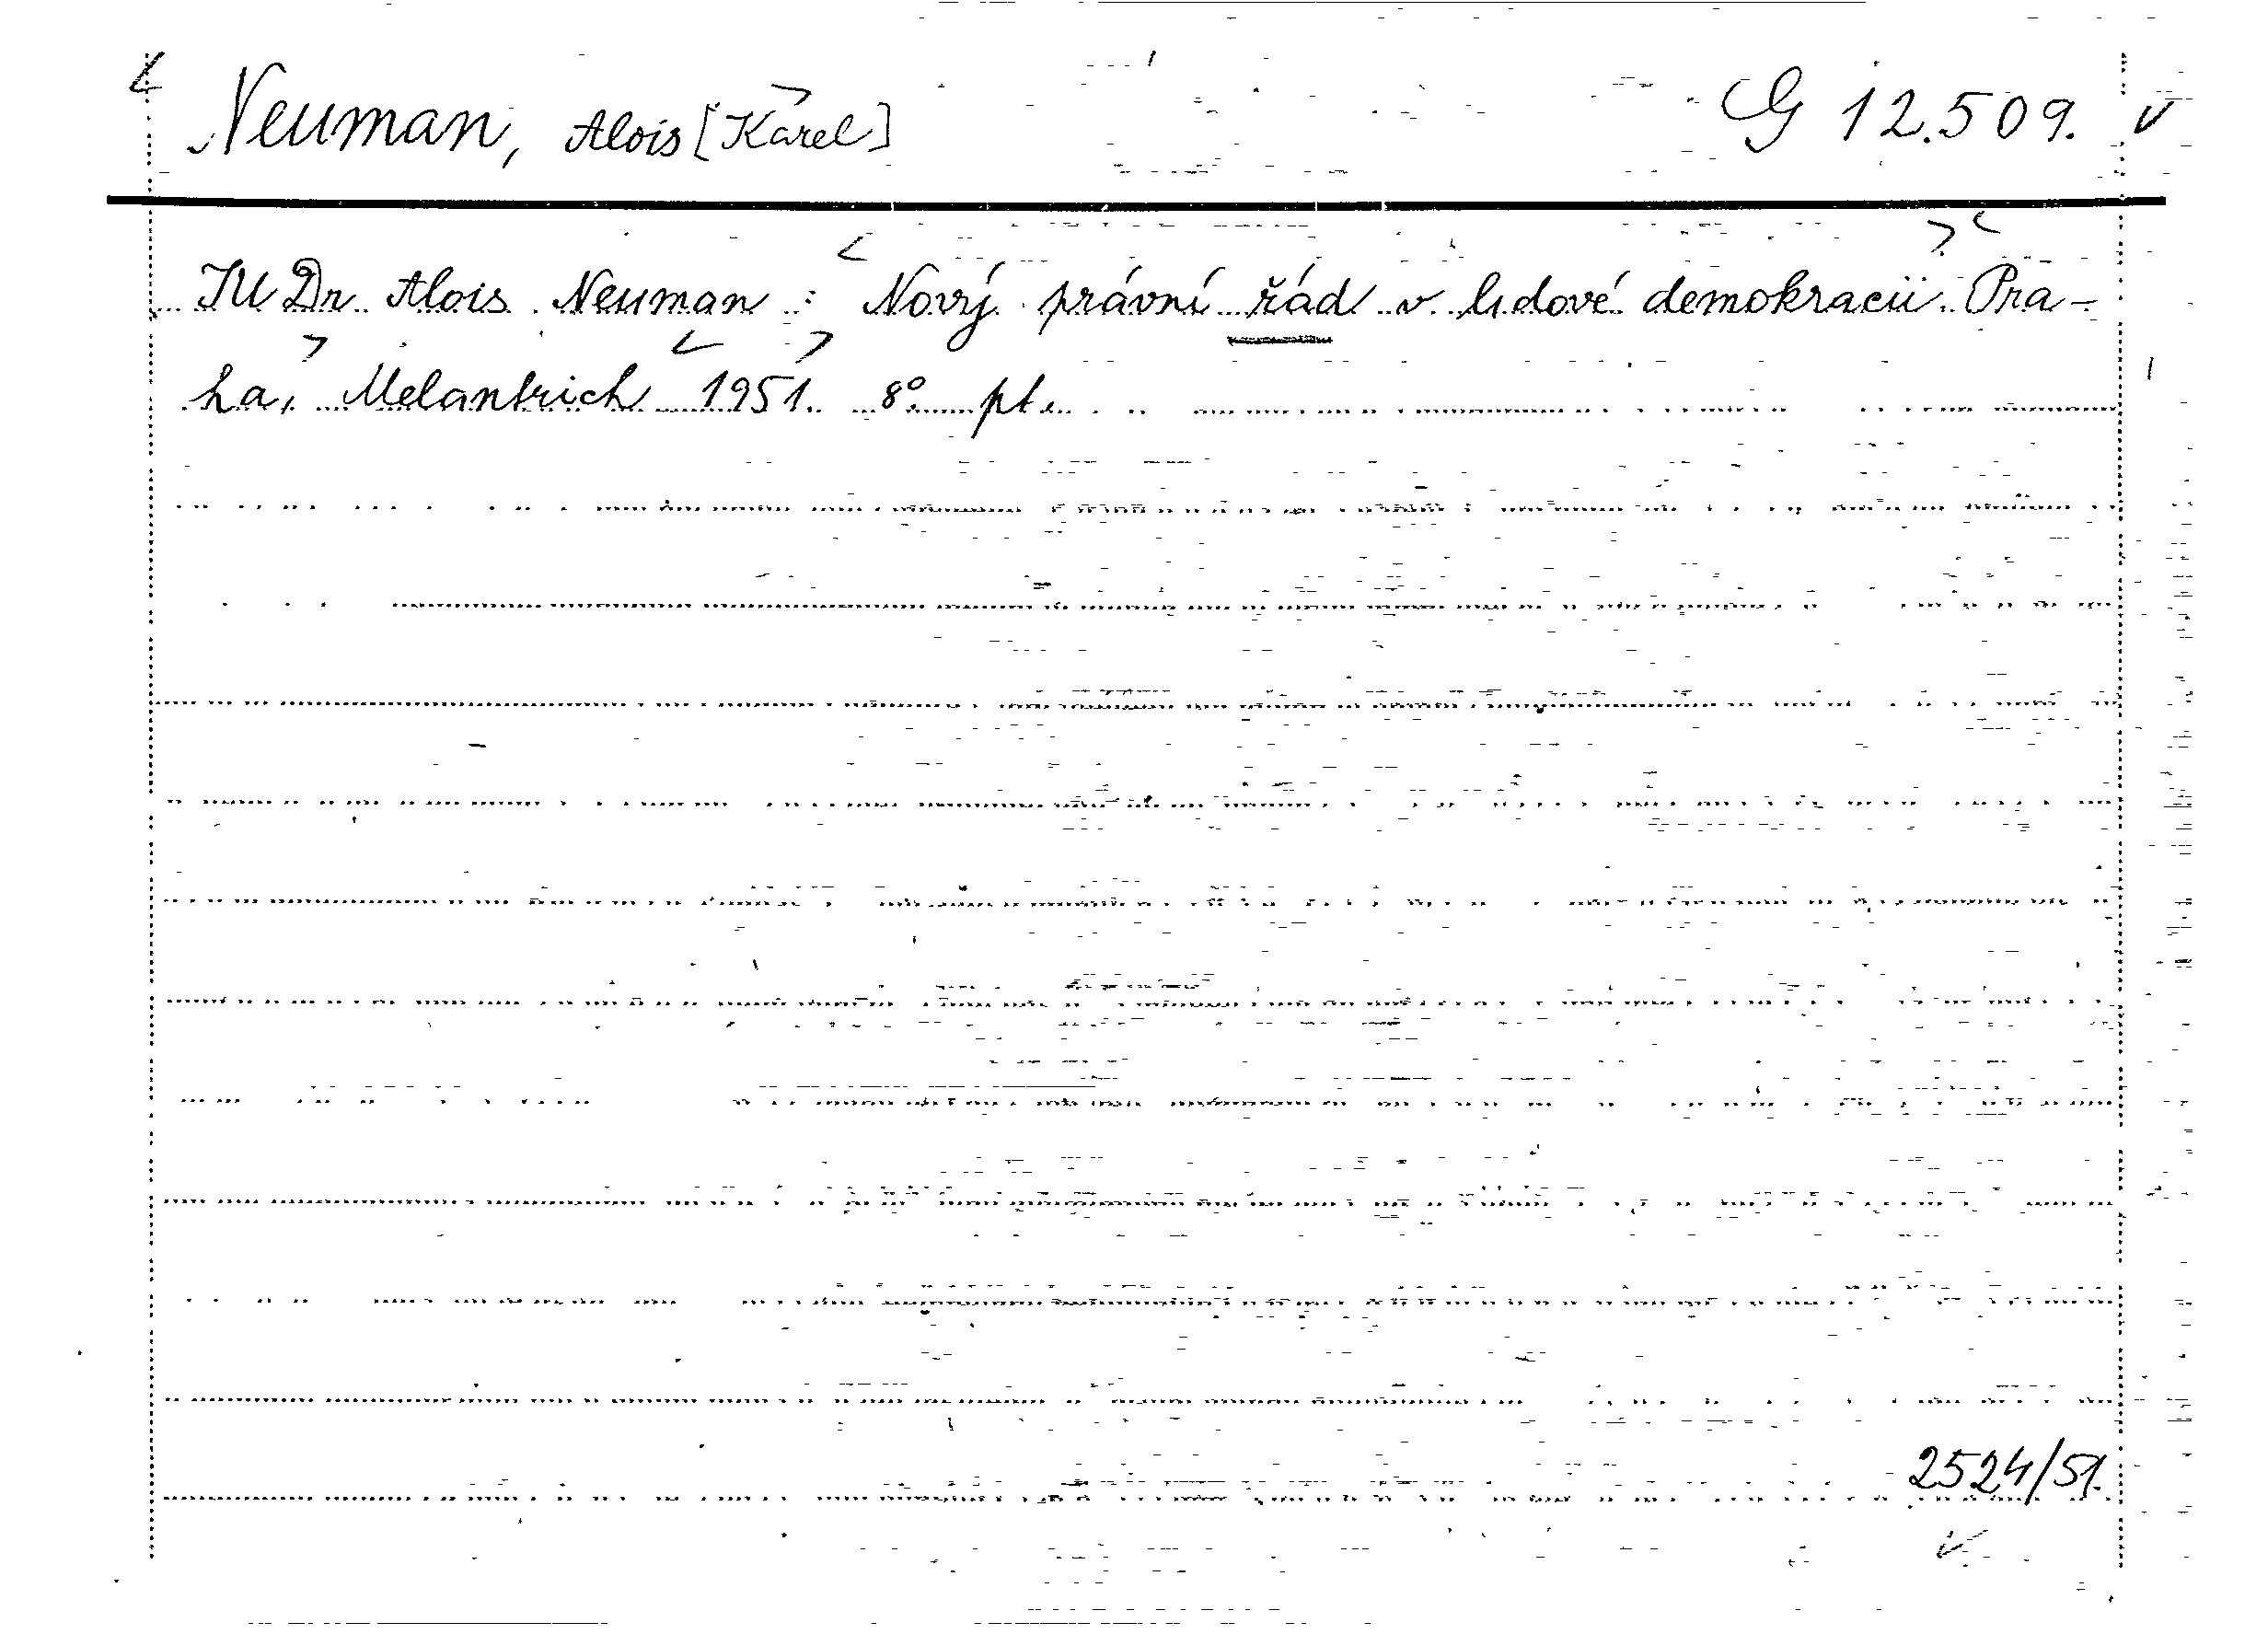 Neuman, Alois [Karel] G 12.509.
JUDr. Alois Neuman: Nový právní řád v lidové demokracii. Pra-
ha, Melantrich 1951. 8° pt.
2524/51.